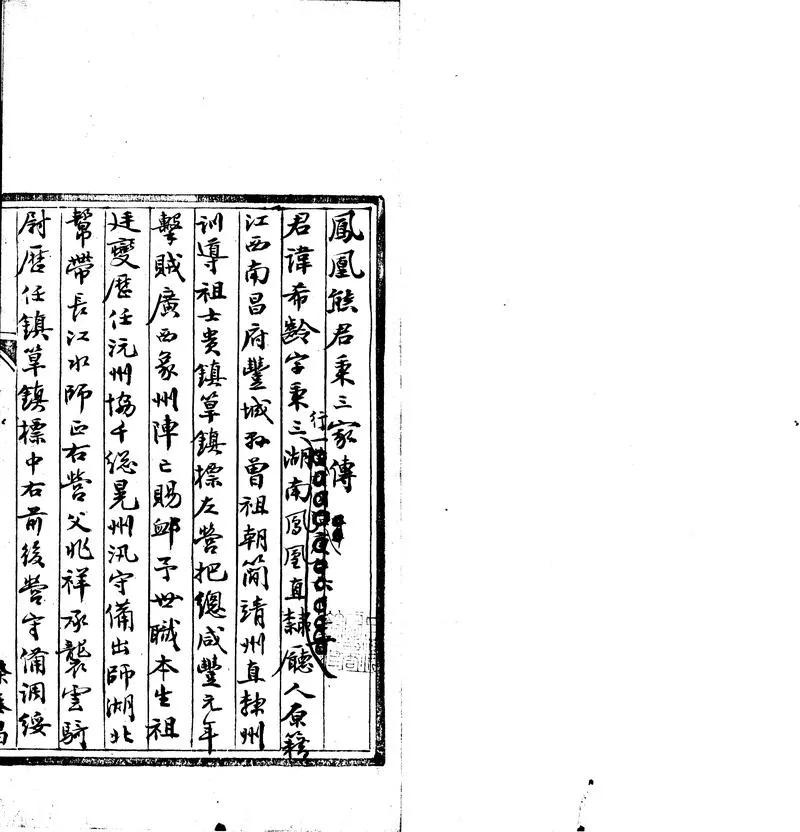 鳳凰熊君秉三家傳
君諱希齡字秉三湖南鳳凰直隸廳人原籍
行一
江西南昌府豐城縣曾祖朝簡靖州直隸州
訓導祖士貴鎮筸鎮標左營把總咸豐元年
擊賊廣西象州陣亡賜卹予世職本生祖
廷燮歷任沅州協千總晃州汛守備出師湖北
幫帶長江水師正右營父兆祥承襲雲騎
尉歷任鎮筸鎮標中右前後營守備調綏